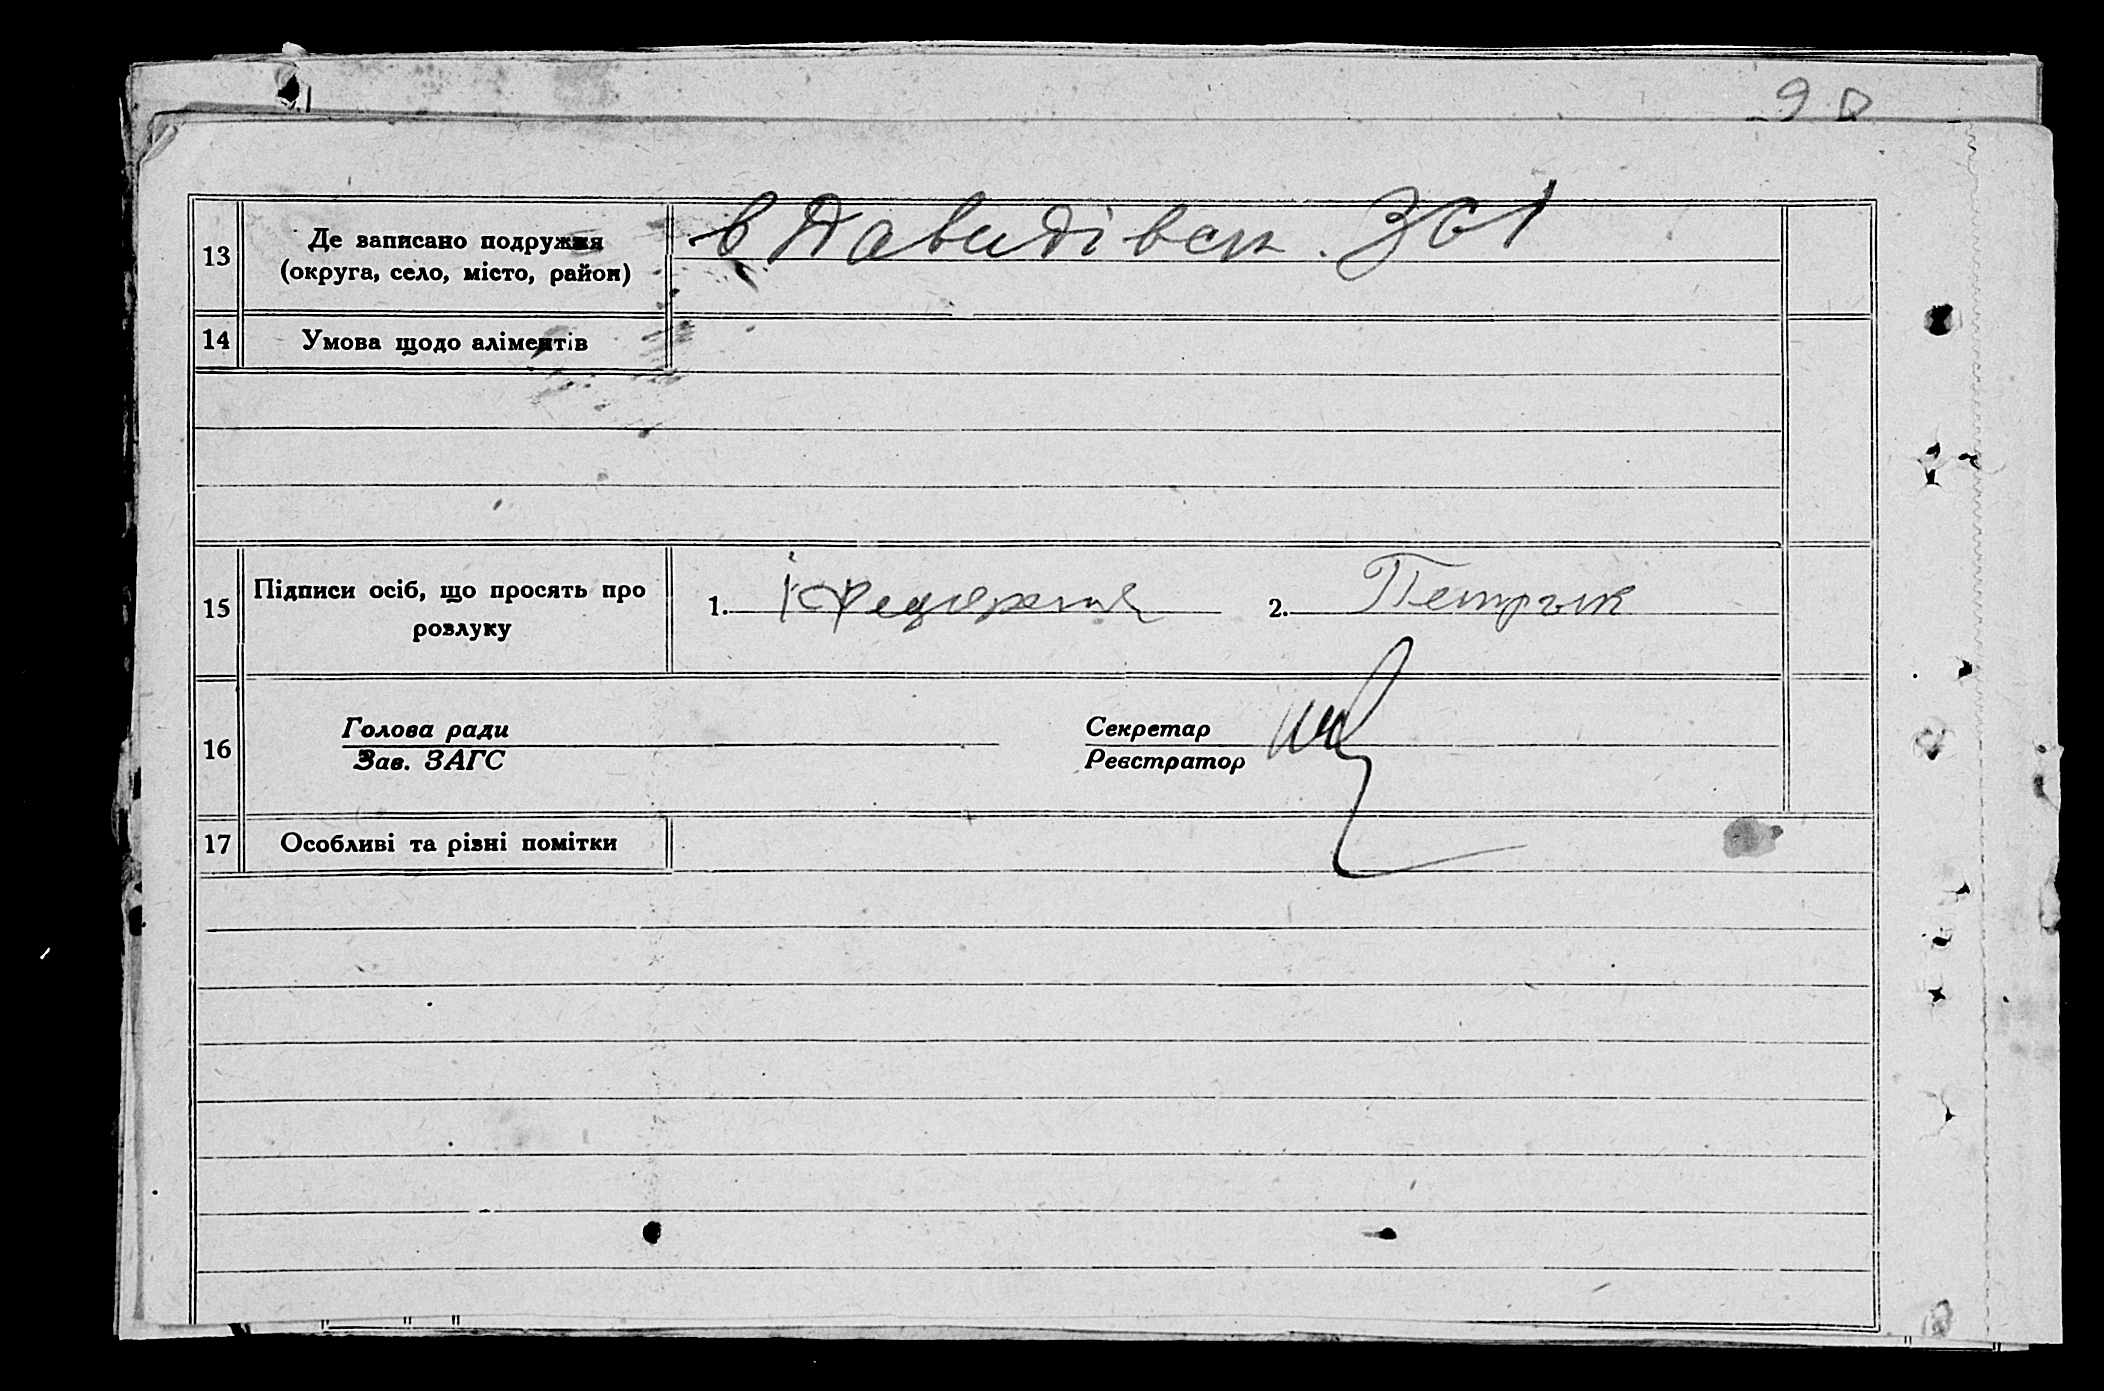 98
13 Де записано подружжя (округа, село, місто, район) в Давидівск. ЗС1
14 Умова щодо аліментів
15 Підписи осіб, що просять про розлуку 1. 2. Петрык
16 Голова ради Секретар
Зав. ЗАГС Реєстратор
17 Особливі та різні помітки